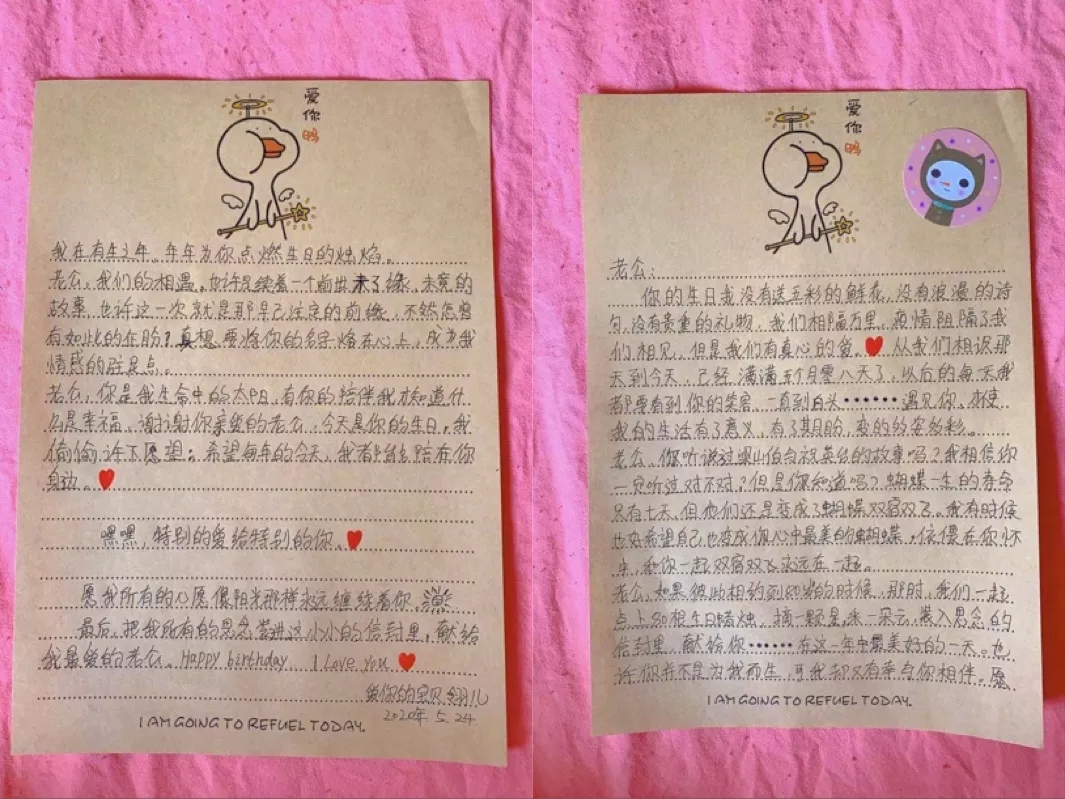 爱
你
鸭
我在有生之年,年年为你点燃生日的烛焰。
老公,我们的相遇。也许是续着一个前世未了缘,未竟的
故事,也许这一次就是那早已注定的前缘,不然怎会
有如此的在盼?真想要将你的名字烙在心上,成为我
情感的驻足点。
老公,你是我生命中的太阳,有你的陪伴我才知道什
么是幸福,谢谢你亲爱的老公,今天是你的生日,我
偷偷许下愿望:希望每年的今天,我都能陪在你
身边。
嘿嘿,特别的爱给特别的你。
愿我所有的心愿像阳光那样永远缠绕着你。
最后,把我所有的思念装进这小小的信封里,献给
我最爱的老公。Happy birthday I Love you
爱你的宝贝 儿
2020年.5.24.
I AM GOING TO REFUEL TODAY.
爱
你
鸭
老公:
你的生日我没有送五彩的鲜花,没有浪漫的诗
句,没有贵重的礼物,我们相隔万里,疫情阻隔了我
们相见,但是我们有真心的爱。从我们相识那
天到今天,已经满满五个月零八天了,以后的每一天我
都要看到你的笑容,一直到白头……遇见你,才使
我的生活有了意义,有了期盼,变的多姿多彩。
老公,你听说过梁山伯与祝英台的故事吗?我相信你
一定听过对不对?但是你知道吗?蝴蝶一生的寿命
只有七天,但他们还是变成了蝴蝶双宿双飞。我有时候
也好希望自己也变成你心中最美的蝴蝶,依偎在你怀
中,和你一起双宿双飞永远在一起。
老公,如果彼此相约到80岁的时候,那时,我们一起
点上80根生日蜡烛,摘一颗星,采一朵云,装入思念的
信封里,献给你……在这一年中最美好的一天。也
许你并不是为我而生,可我却又有幸与你相伴。愿
I AM GOING TO REFUEL TODAY.